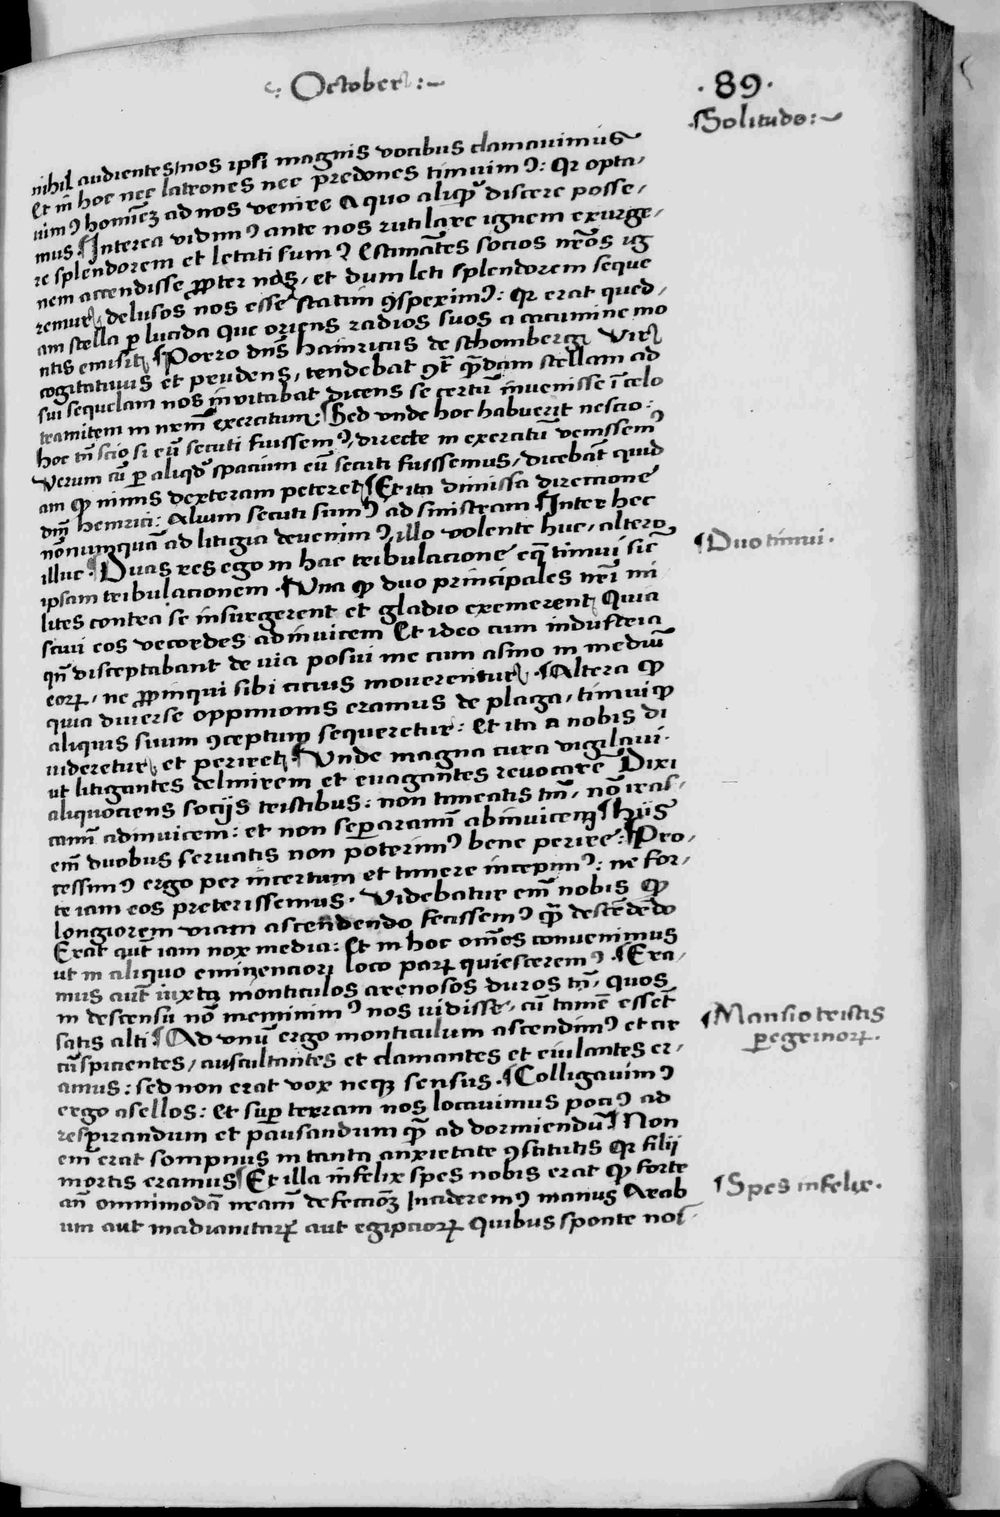 October
89.
Solitudo:
nihil audientes/nos ipsi magnis vocibus clamavimus
Et in hoc nec latrones nec predones timuimꝰ: Qr opta-
uimꝰ hominẽ ad nos venire a quo aliqͥd discere posse-
mus ¶Interea vidimꝰ ante nos rutilare ignem exurge-
re splendorem et letati sumꝰ Estimãtes socios nr̃os ig
nem accendisse ꝓpter nos, et dum leti splendorem seque
remur, delusos nos esse statim ꝯspeximꝰ: Qr erat qued-
am stella p lucida que oriens radios suos a cacumine mo
ntis emisit ¶Porro dñs hainricus de schomberg Vir
cogitatiuus et prudens, tendebat ꝯt̃ q̃dam stellam ad
sui sequelam nos invitabat dicens se certũ invenisse ĩ celo
tramitem in nr̃m exercitum: ¶Sed vnde hoc habuerit nescio:
hoc tñ scio si eũ secuti fuissemꝰ, directe in exercitũ venissemꝰ
Verum cũ p aliqd̃ spacium eũ secuti fuissemus, dicebãt quid
am ꝙ nimis dexteram peteret ¶Et ita dimissa directione
dñi henrici: Alium secuti sumꝰ ad sinistram ¶Inter hec
nõnumquã ad litigia devenimꝰ, illo volente huc, altero
illuc. ¶Duas res ego in hac tribulacione eq̃ timui sic̃
ipsam tribulacionem. Vna ꝙ duo principales nr̃i mi
lites contra se insurgerent et gladio exemerent Quia
sciui eos vecordes adinvicem Et ideo cum industria
qñ disceptabant de via posui me cum asino in mediũ
eoꝝ, ne ꝓpinqui sibi cicius moverentur. ¶Altera ꝙ
quia diuerse oppinionis eramus de plaga, timui ꝙ
aliquis suum ꝯceptum sequeretur: Et ita a nobis di
uideretur et periret. ¶Vnde magna cura vigilaui.
ut litigantes delinirem et evagantes revocarẽ Dixi
aliquociens socijs tristibus: non timeatis tm̃, nõ iras-
camĩ adinvicem: et non separamĩ abinvicem ¶hijs
em̃ duobus servatis non poterimꝰ bene perire: ¶Pro-
cessimꝰ ergo per incertum et timere incepimꝰ: ne for-
te iam eos preterissemus. Videbatur em̃ nobis ꝙ
longiorem viam ascendendo fecissemꝰ q̃ descẽdẽdo
Erat aut̃ iam nox media: Et in hoc om̃es convenimus
ut in aliquo eminenciori loco paꝝ quiesceremꝰ. ¶Era-
mus aut̃ iuxta monticulos arenosos duros tñ, quos
in descensu nõ meminimꝰ nos vidisse, cũ tamẽ essẽt
satis alti ¶Ad vnũ ergo monticulum ascendimꝰ et cir
cũspicientes, auscultantes et clamantes et eiulantes er-
amus: sed non erat vox neqꝫ sensus. ¶Colligavimꝰ
ergo asellos: Et sup terram nos locavimus pociꝰ ad
respirandum et pausandum q̃ ad dormiendũ ¶Non
em̃ erat sompnus in tanta anxietate ꝯstitutis Qr filii
mortis eramus ¶Et illa infelix spes nobis erat ꝙ forte
añ omnimodã nr̃am defectioꝫ Incideremꝰ manus Arab
um aut madianitaꝝ aut egiptioꝝ Quibus sponte noĩ.
¶Duo timui.
¶Mansio tristis
pegrinoꝝ.
¶Spes infelix.